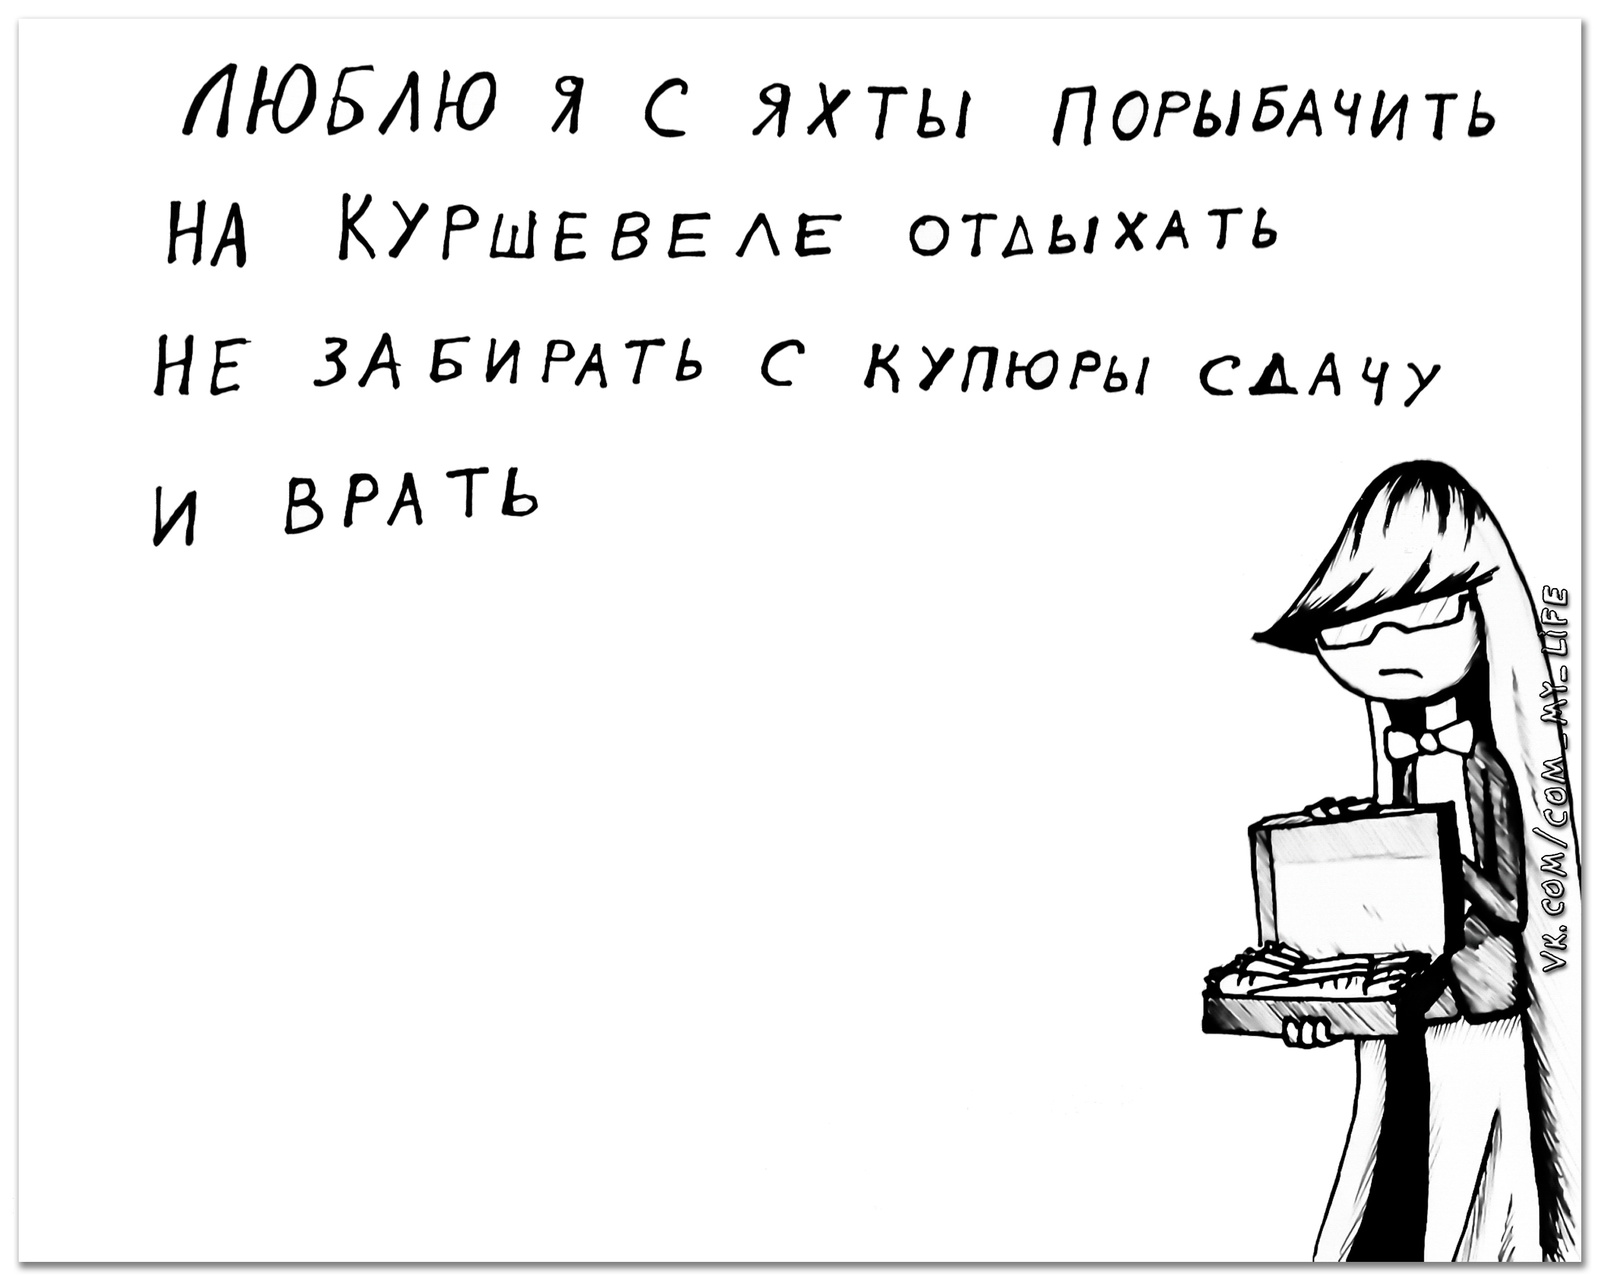 ЛЮБЛЮ Я С ЯХТЫ ПОРЫБАЧИТЬ
НА КУРШЕВЕЛЕ ОТДЫХАТЬ
НЕ ЗАБИРАТЬ С КУПЮРЫ СДАЧУ
И ВРАТЬ
VK.COM/COM_MY_LIFE